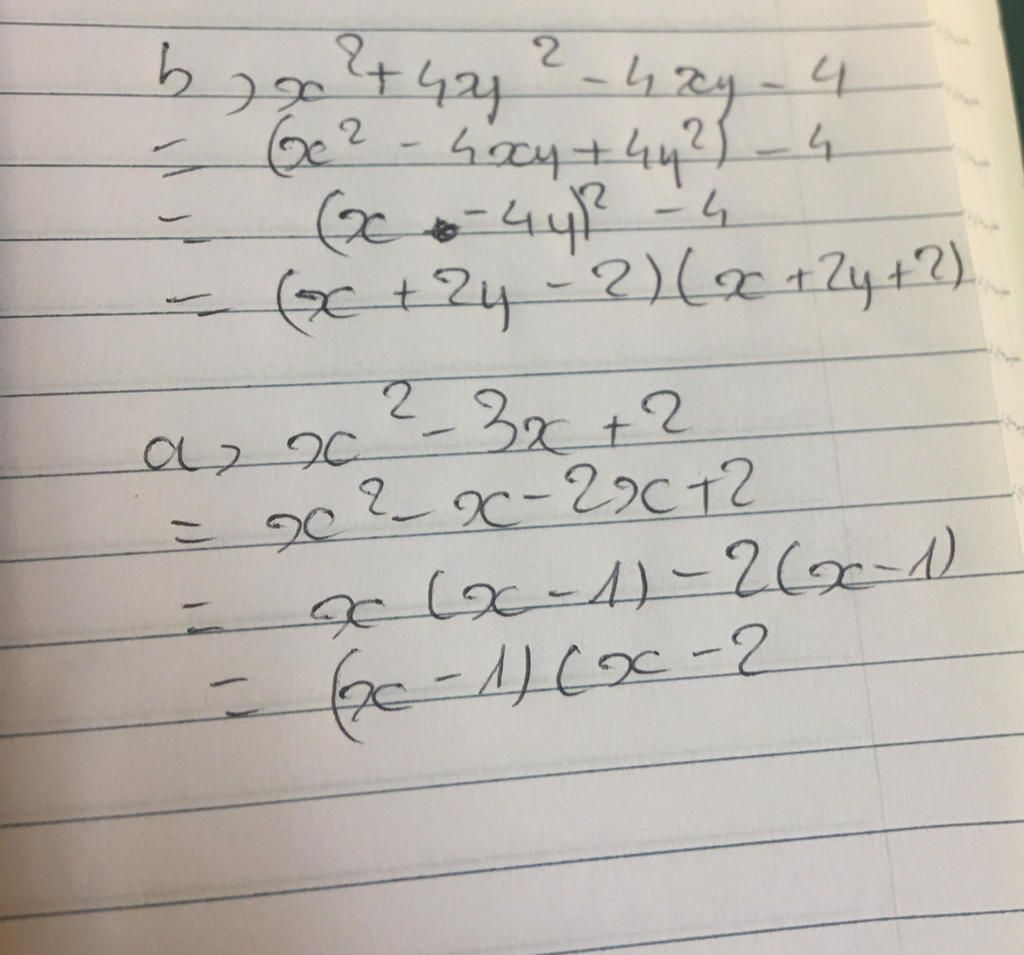 b) x² + 4xy² - 4xy - 4
= (x² - 4xy + 4y²) - 4
= (x - 4y)² - 4
= (x + 2y - 2)(x + 2y + 2)
a) x² - 3x + 2
= x² - x - 2x + 2
= x (x - 1) - 2(x - 1)
= (x - 1)(x - 2